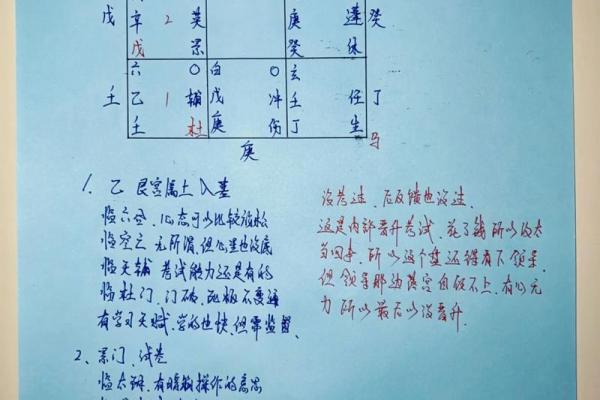 戊 辛 2 英 庚 蓬 癸
戊 景 癸 休
六 〇 白 〇 玄
壬 乙 1 辅 戊 冲 壬 任 丁
壬 杜 庚 伤 丁 生 马
庚
1、乙 艮宫属土入墓
临六合、心态可以比较放松
临空亡 无所谓、但心里也没底
临天辅 考试能力还是有的
临杜门、门破、死板不变通
有学习天赋、学的也快、但需监督、
2、景门、试卷
临太阴、有暗箱操作的意思
没考过、后反馈也没过
这是内部晋升考试、花了钱所以没太
当回事、所以这个盘还得有下领导、
但领导那边落宫自顾不上、有心无
力 所以最后以没晋升.